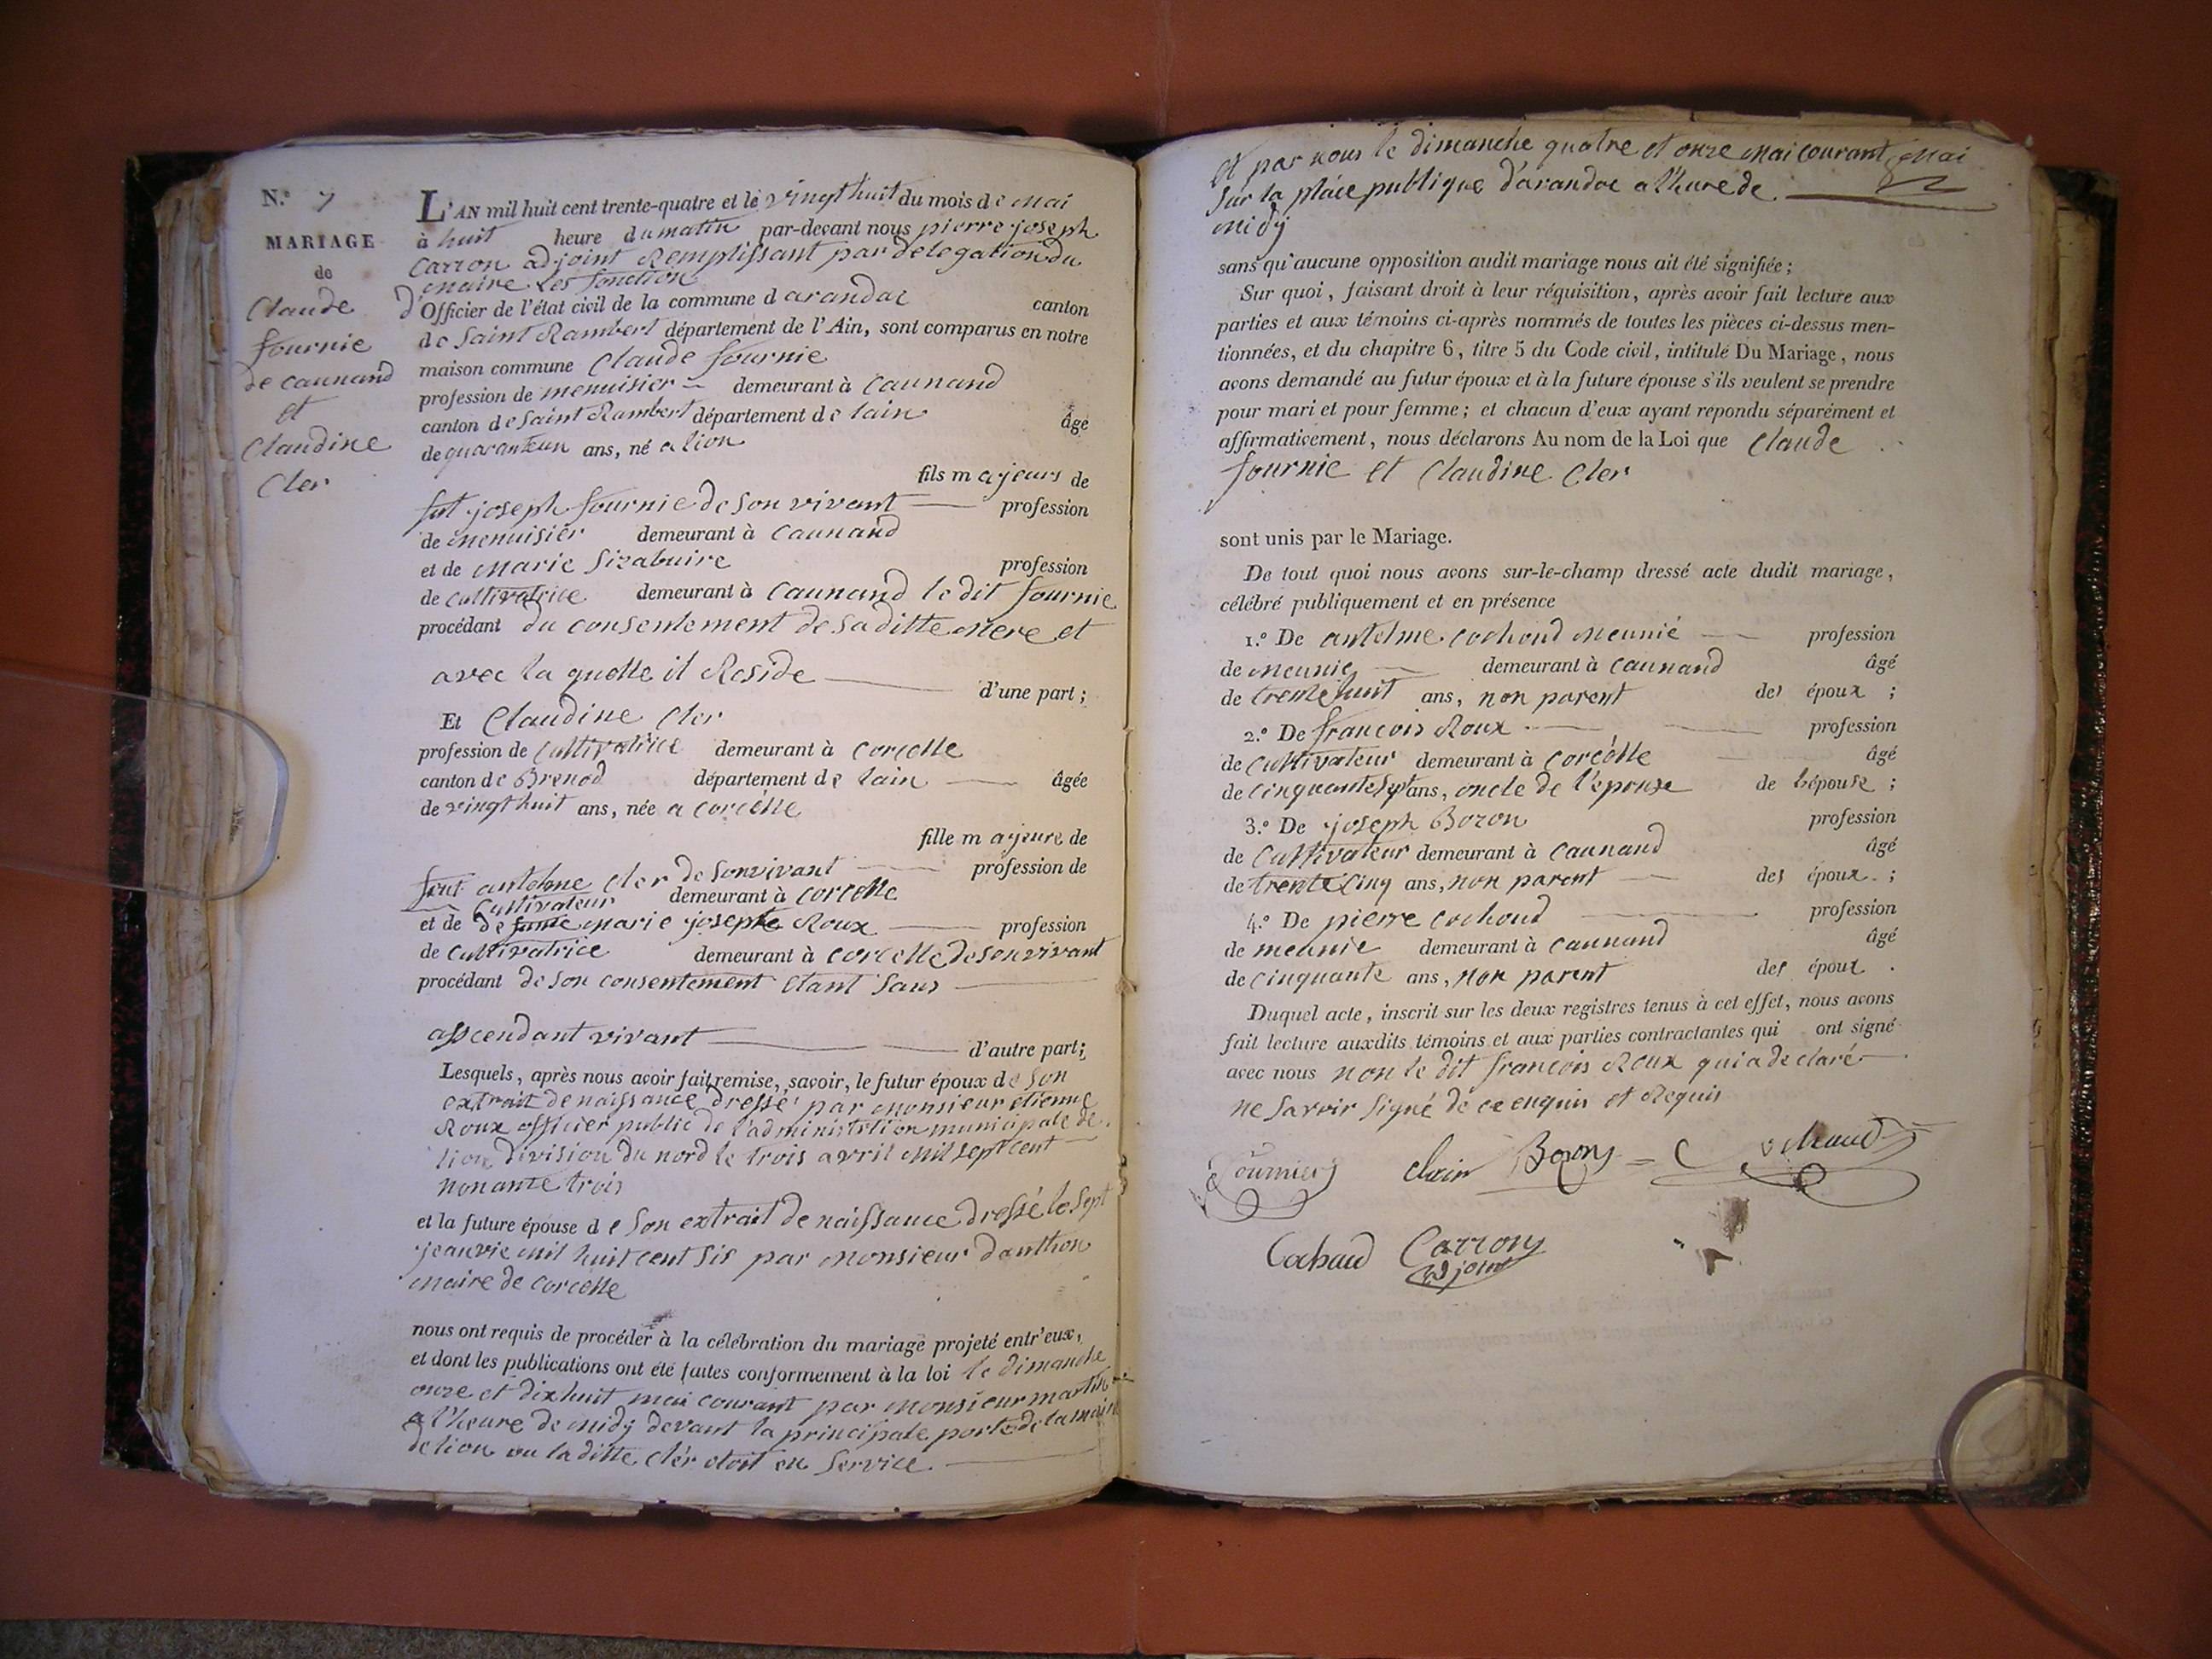 N.° 7
MARIAGE
de
Claude
fournie
de caunand
et
Claudine
Cler
L'AN mil huit cent trente-quatre et le vingt huit du mois de mai
à huit heure du matin par-devant nous pierre joseph
Carron adjoint Remplissant par delegation du
maire les fonction
d'Officier de l'état civil de la commune d arandac canton
de Saint Rambert département de l'Ain, sont comparus en notre
maison commune Claude fournie
profession de menuisier demeurant à Caunand
canton de Saint Rambert département de lain âgé
de quaranteun ans, né a lion
fils majeurs de
fut joseph fournie de son vivant profession
de menuisier demeurant à Caunand
et de marie Sizabuire profession
de cultivatrice demeurant à Caunand le dit fournie
procédant du consentement de sa ditte mere et
avec la quelle il Reside d'une part ;
Et Claudine Cler
profession de Cultivatrice demeurant à corcelle
canton de Brenod département de lain âgée
de vingt huit ans, née a corcelle
fille majeure de
feut antelme Cler de son vivant profession de
Cultivateur demeurant à corcelle
et de defunte marie josephe Roux profession
de Cultivatrice demeurant à corcelle de son vivant
procédant de son consentement etant sans
asscendant vivant d'autre part ;
Lesquels, après nous avoir fait remise, savoir, le futur époux de son
extrait de naissance dressé par monsieur etienne
Roux officier public de l'administration municipale de
lion division du nord le trois avril mil sept cent
nonante trois
et la future épouse de son extrait de naissance dressé le sept
jeanvie mil huit cent sis par monsieur danthon
maire de corcelle
nous ont requis de procéder à la célébration du mariage projeté entr'eux,
et dont les publications ont été faites conformement à la loi le dimanche
onze et dixhuit mai courant par monsieur martin
a lheure de midy devant la principale porte de la mairie
de lion ou la ditte Clér etoit en service
et par nous le dimanche quatre et onze mai courant mai
sur la place publique d'arandac a lheure de
midy
sans qu'aucune opposition audit mariage nous ait été signifiée ;
Sur quoi, faisant droit à leur réquisition, après avoir fait lecture aux
parties et aux témoins ci-après nommés de toutes les pièces ci-dessus men-
tionnées, et du chapitre 6, titre 5 du Code civil, intitulé Du Mariage, nous
avons demandé au futur époux et à la future épouse s'ils veulent se prendre
pour mari et pour femme ; et chacun d'eux ayant repondu séparément et
affirmativement, nous déclarons Au nom de la Loi que Claude
fournie et Claudine Cler
sont unis par le Mariage.
De tout quoi nous avons sur-le-champ dressé acte dudit mariage,
célébré publiquement et en présence
1.° De antelme cochoud meunié profession
de meunie demeurant à Caunand âgé
de trente huit ans, non parent des époux ;
2.° De francois Roux profession
de Cultivateur demeurant à corcelle âgé
de cinquantesept ans, oncle de l'epouse de lépouse ;
3.° De joseph Bozon profession
de Cultivateur demeurant à Caunand âgé
de trente cinq ans, non parent des époux ;
4.° De pierre cochoud profession
de meunie demeurant à Caunand âgé
de cinquante ans, non parent des époux .
Duquel acte, inscrit sur les deux registres tenus à cet effet, nous avons
fait lecture auxdits témoins et aux parties contractantes qui ont signé
avec nous non le dit francois Roux qui a declaré
ne savoir signé de ce enquis et Requis
fournier clair Bozon
Cochaud Carron
adjoint